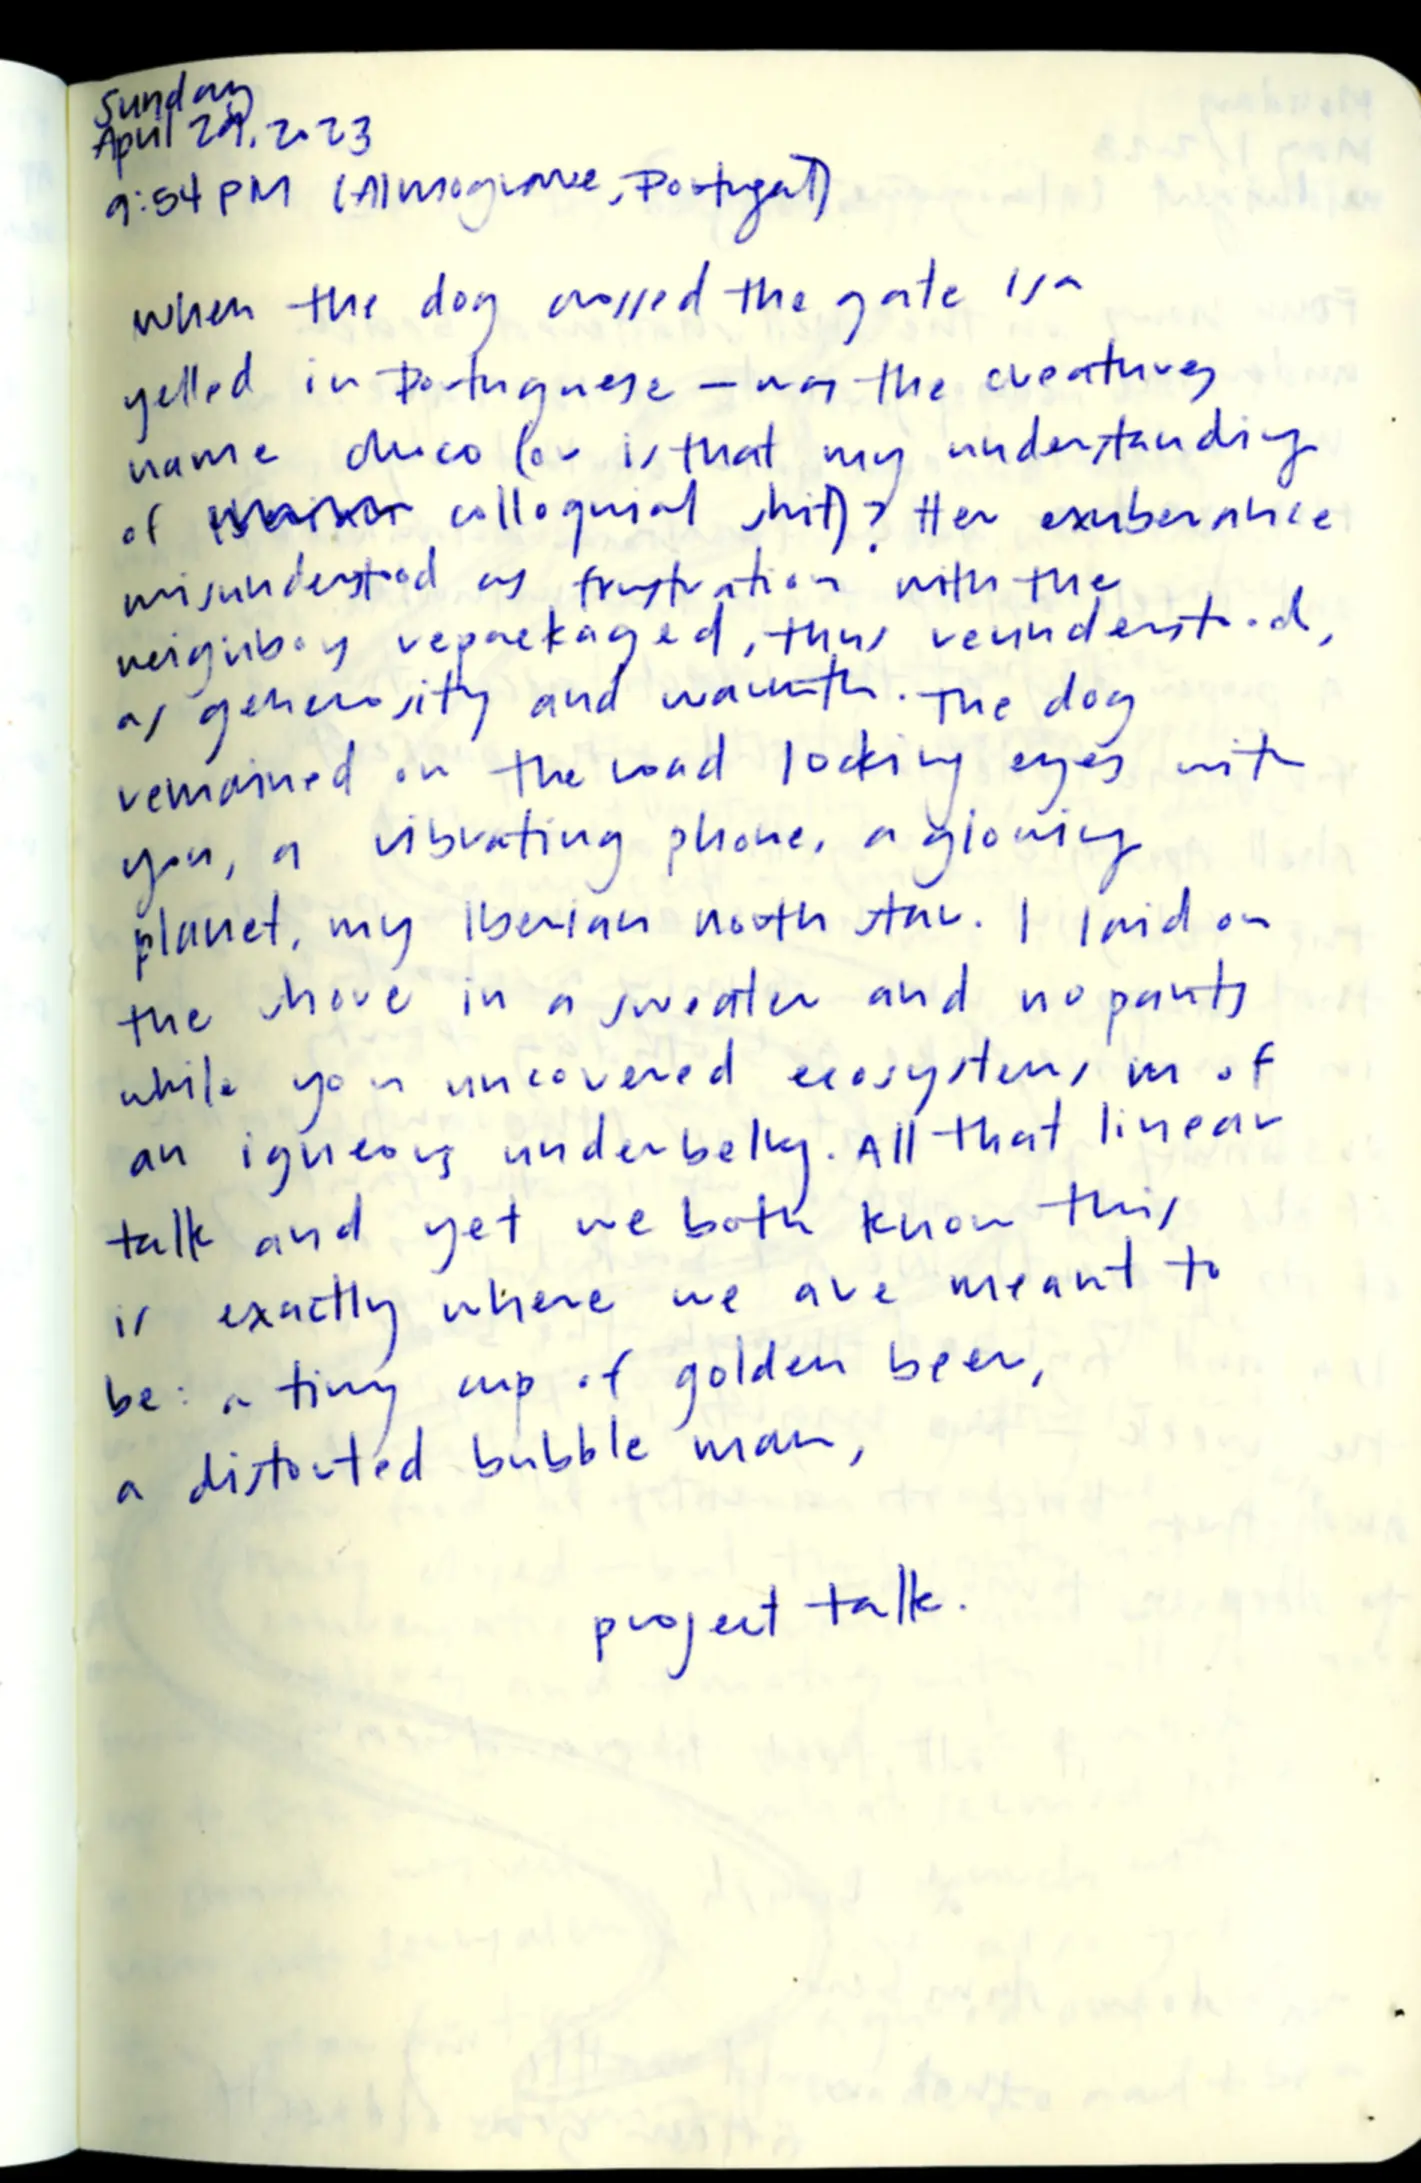 Sunday
April 29, 2023
9:54 PM (Almograve, Portugal)
When the dog crossed the gate Isa
yelled in Portuguese – was the creatures
name chico (or is that my understanding
of colloquial shit)? Her exuberance
misunderstood as frustration with the
neighbors repackaged, thus reunderstood,
as generosity and warmth. The dog
remained on the road locking eyes with
you, a vibrating phone, a glowing
planet, my Iberian north star. I laid on
the shore in a sweater and no pants
while you uncovered ecosystems in of
an igneous underbelly. All that linear
talk and yet we both know this
is exactly where we are meant to
be: a tiny cup of golden beer,
a distorted bubble man,
project talk.